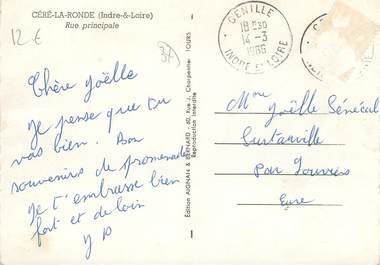 CÉRÉ-LA-RONDE (Indre-&-Loire)
Rue principale
12 €
37
Chère Joëlle
Je pense que tu
vas bien. Bon
souvenirs de promenade
Je t'embrasse bien
fort et de loin
J P
Edition AIGNAN & BERNARD - 60, Rue J. Charpentier - TOURS
Reproduction Interdite
GENILLE
18H30
14-3
1966
INDRE ET LOIRE
Joëlle Sénécal
Surtauville
Par Louviers
Eure